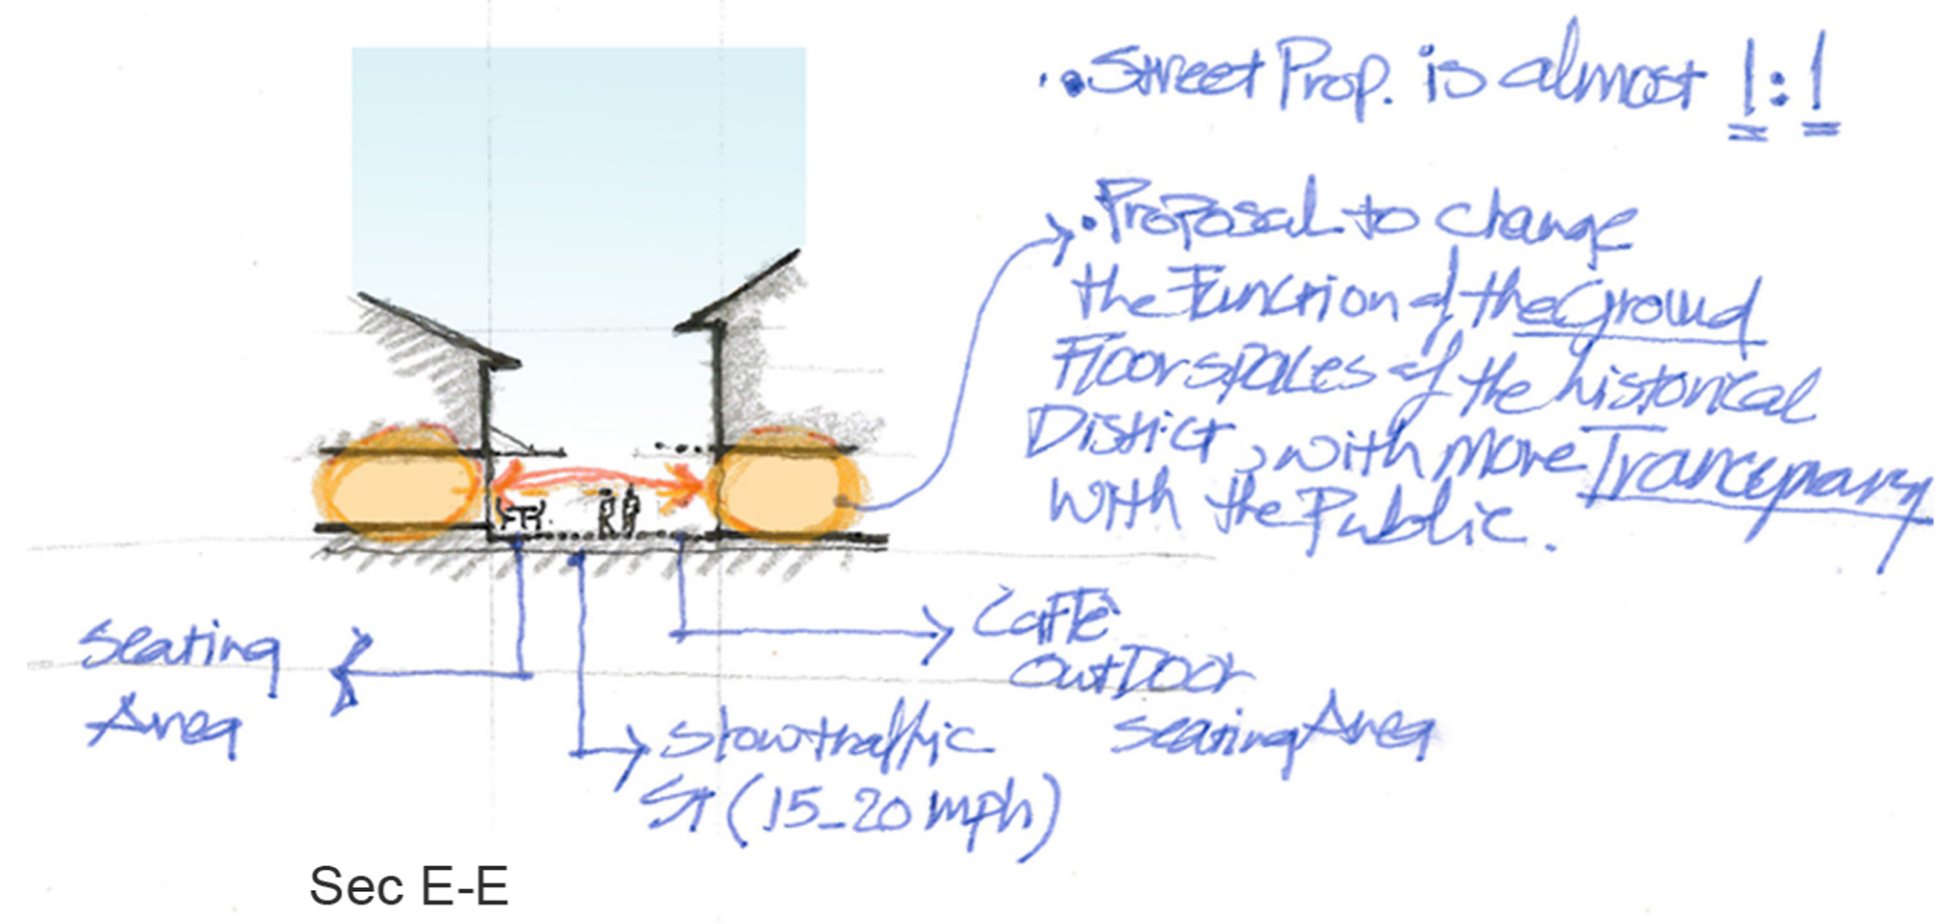 Street Prop. is almost 1:1
Proposal to change
the Function of the Ground
Floor spaces of the historical
District, with more Trancepnarcy
with the Public.
Seating
Area
CaFFe
OutDoor
seating Area
slow traffic
ST (15-20 mph)
Sec E-E